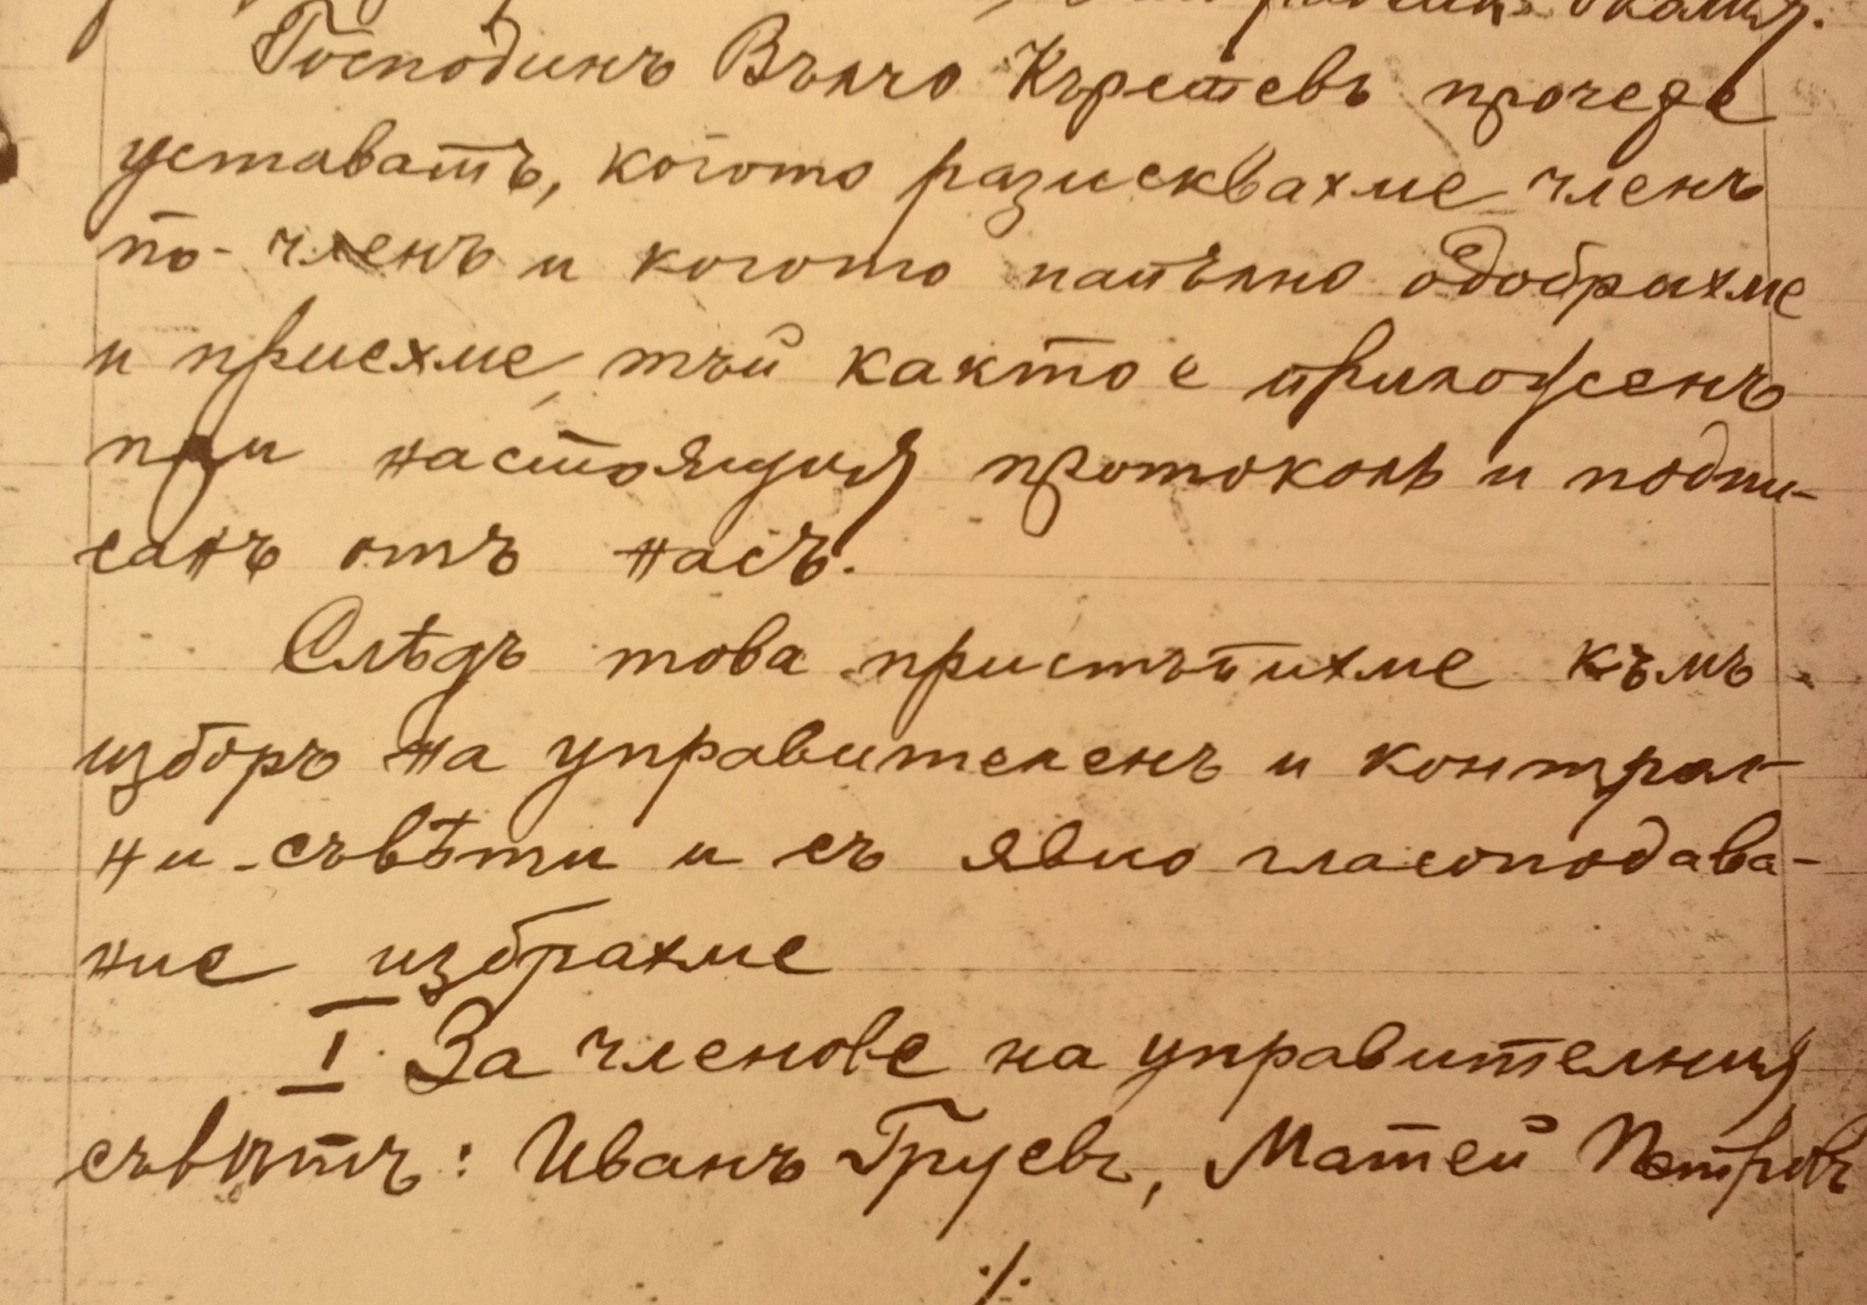 Господинъ Вълчо Кърстевъ прочете
уставатъ, когото разисквахме членъ
по-членъ и когото напълно одобрихме
и приехме тъй както е приложенъ
при настоящия протоколъ и подпи-
санъ отъ насъ.
Слѣдъ това пристѫпихме къмъ
изборъ на управителенъ и контрол-
ни съвѣти и съ явно гласоподава-
ние избрахме
I За членове на управителния
съвѣтъ: Иванъ Груевъ, Матей Петровъ
./.